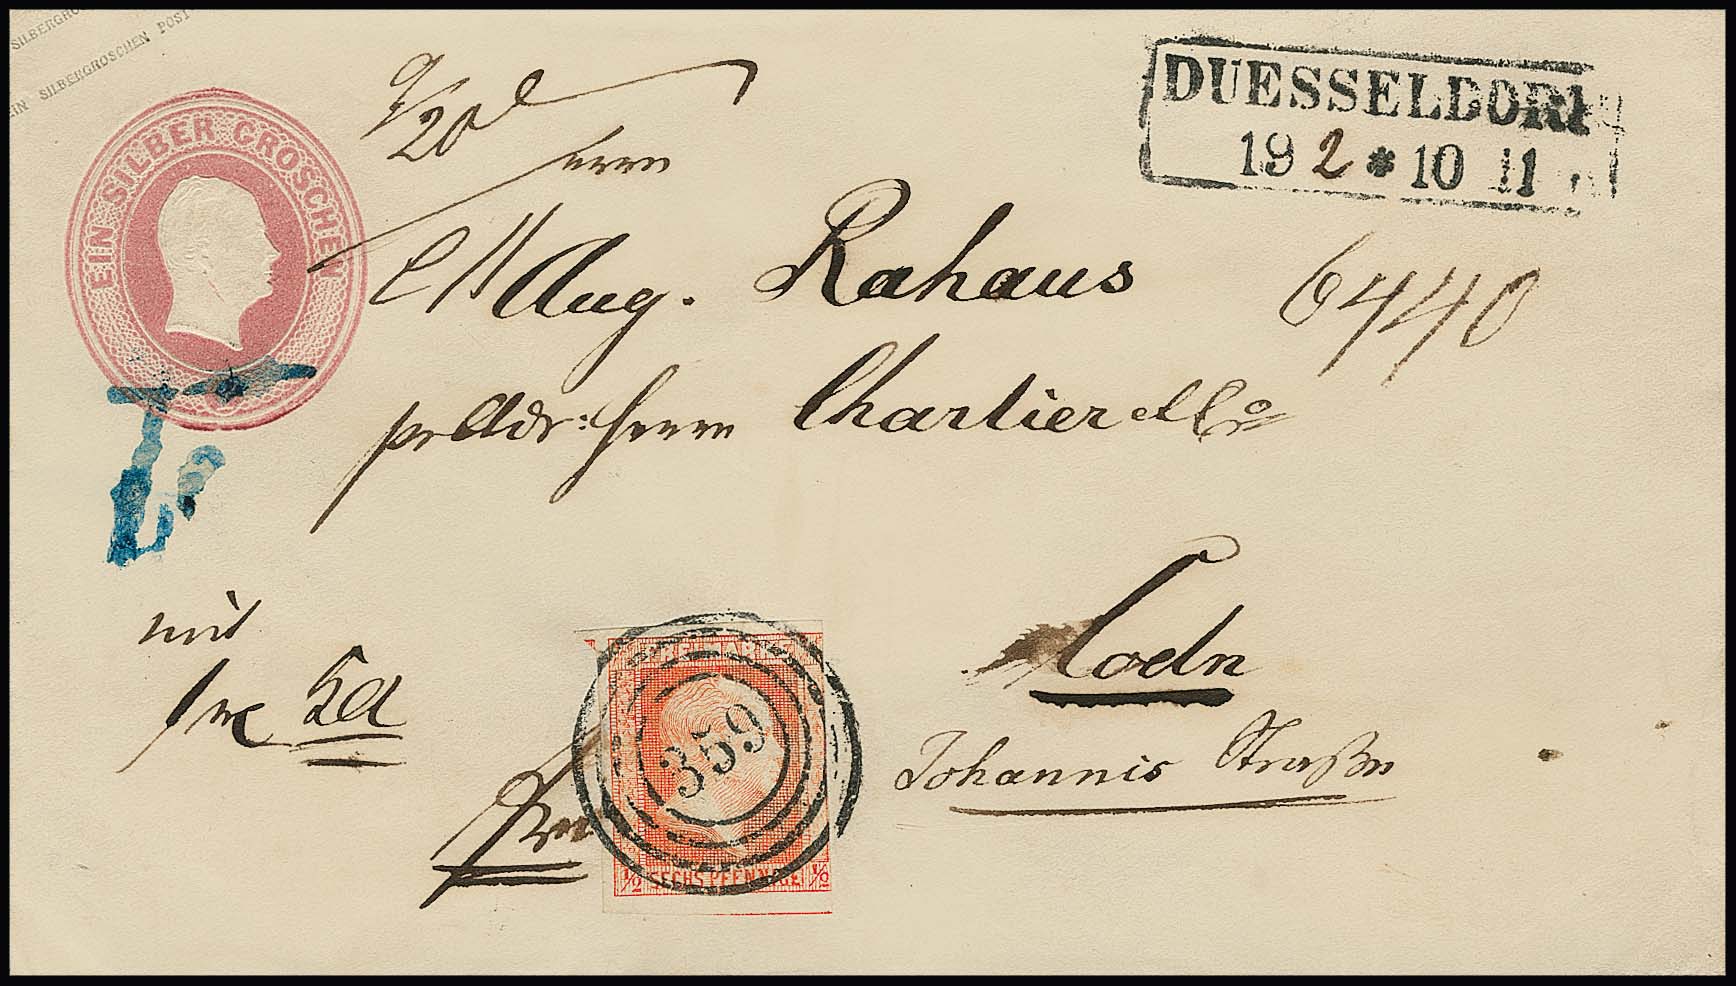 SILBERGRO
EIN SILBERGROSCHEN POST
EIN SILBER GROSCHEN
DUESSELDORF
19 2 * 10 11
Herrn
Aug. Rahaus
6440
pr Adr: Herrn Chartier & Co
Coeln
Johannis Straße
mit
359
SECHS PFENNIGE
1/2 1/2